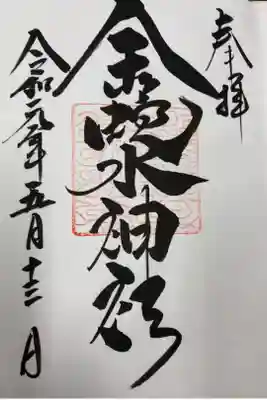 奉拝
金蛇水神社
令和元年五月十三日